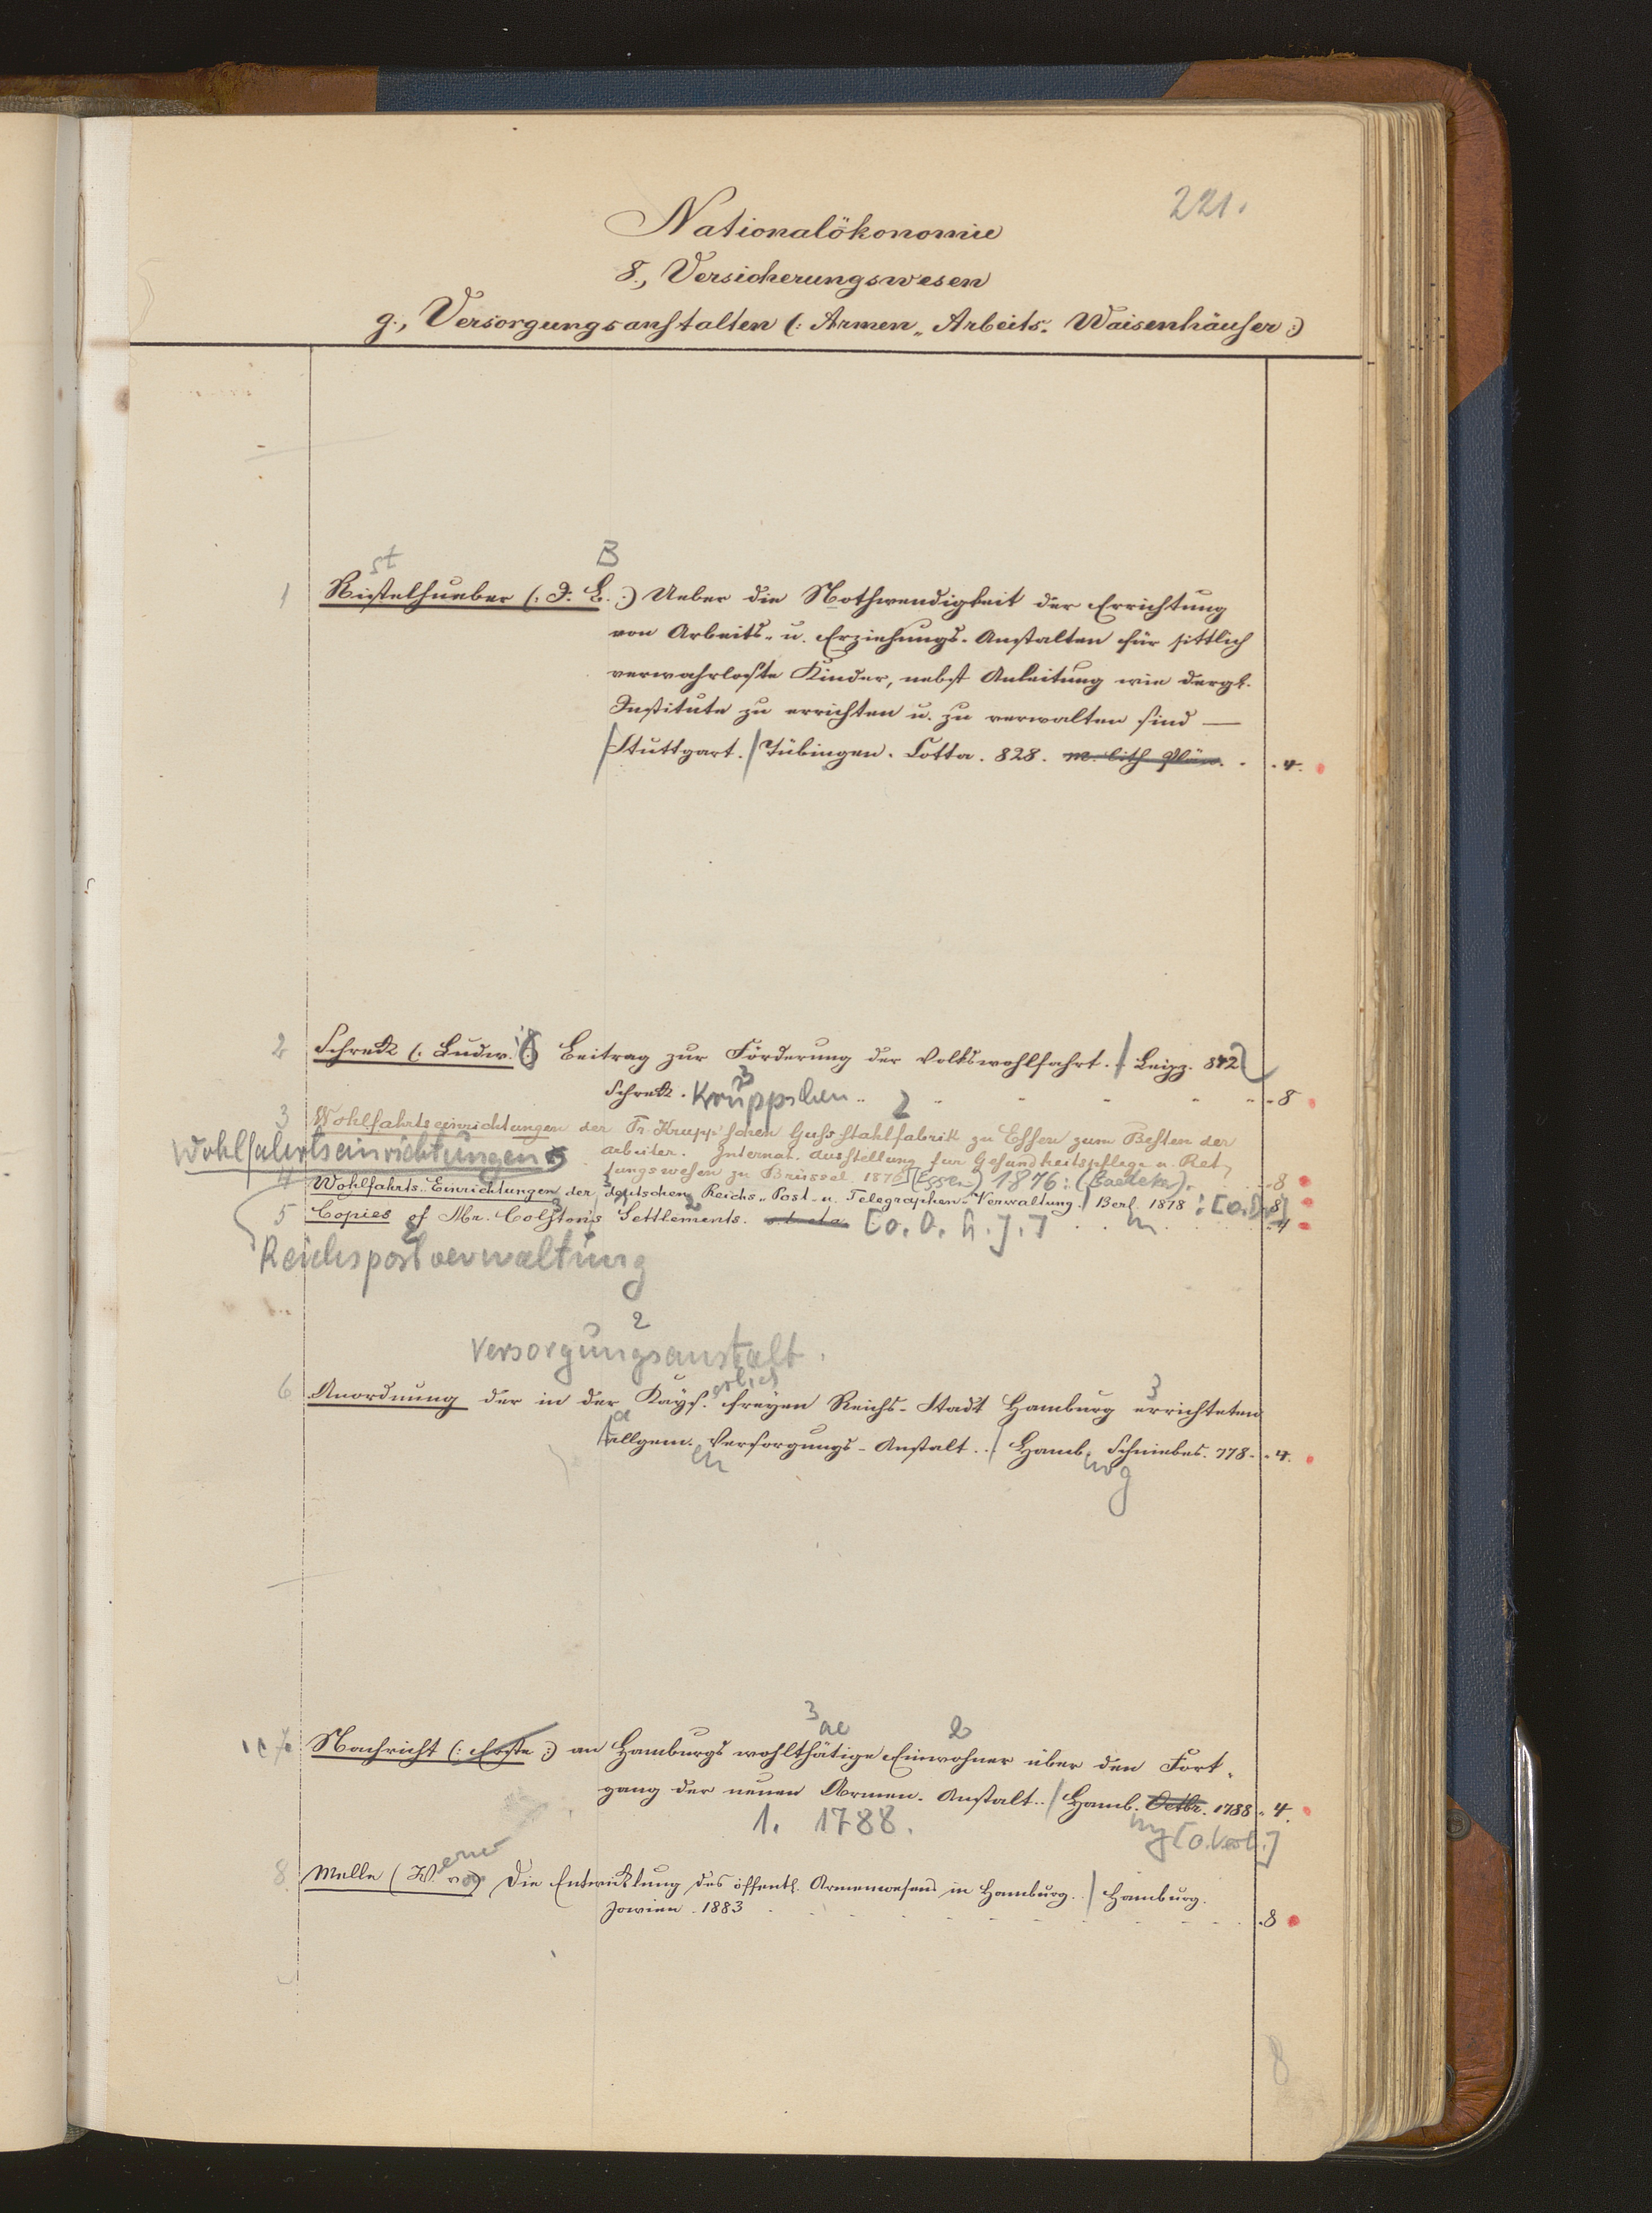 221.
Nationalökonomie
8., Versicherungswesen
g., Versorgungsanstalten (: Armen-, Arbeits-, Waisenhäuser :)
st B
1 Ristelhueber (: J. B. :) Ueber die Nothwendigkeit der Errichtung
von Arbeits- u. Erziehungs-Anstalten für sittlich
verwahrloste Kinder, nebst Anleitung wie dergl.
Institute zu errichten u. zu verwalten sind —
Stuttgart. / Tübingen. Cotta. 828. m. lith. Plän. . . 4.
2 Schreck (: Ludw. :) Beitrag zur Förderung der Volkswohlfahrt. / Leipz. 872
Schreck. . . 8
3 Kruppschen 2
3 Wohlfahrtseinrichtungen der Fr. Krupp'schen Gussstahlfabrik zu Essen zum Besten der
Wohlfahrtseinrichtungen Arbeiter. Internat. Ausstellung für Gesundheitspflege u. Ret-
tungswesen zu Brüssel. 1876 (Essen) 1876: (Baedeker). . . 8
4 Wohlfahrts-Einrichtungen der deutschen Reichs-Post- u. Telegraphen-Verwaltung. / Berl. 1878 : [o. Dr.] 8
5 Copies of Mr. Colston's Settlements. [o. O. u. J.] . . 4
Reichspostverwaltung
2
Versorgungsanstalt.
erlich 3
6 Anordnung der in der Kays. freyen Reichs-Stadt Hamburg errichteten
a
allgem. Versorgungs-Anstalt. . / Hamb. Schniebes. 778. . 4.
en urg
3 ae 2
7 Nachricht (: Erste :) an Hamburgs wohlthätige Einwohner über den Fort-
gang der neuen Armen-Anstalt. . / Hamb. Octbr. 1788 . 4.
1. 1788. urg [o. Verl.]
erner
8. Melle (W. von) Die Entwicklung des öffentl. Armenwesens in Hamburg. . / Hamburg.
Jowien. 1883 . . 8
8